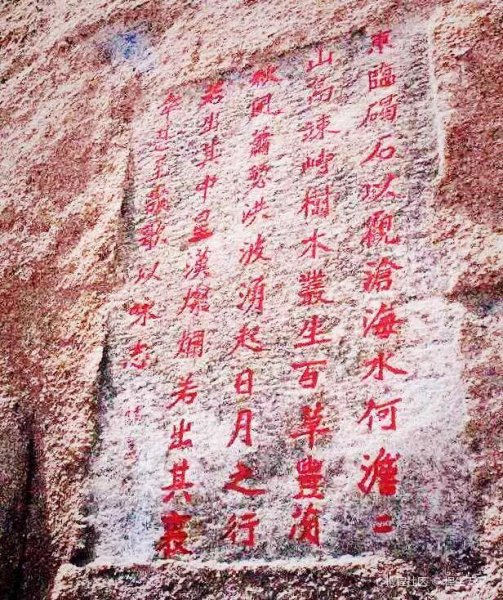 東臨碣石以觀滄海水何澹二
山島竦峙樹木叢生百草豐茂
秋風蕭瑟洪波湧起日月之行
若出其中星漢燦爛若出其裏
幸甚至哉歌以咏志